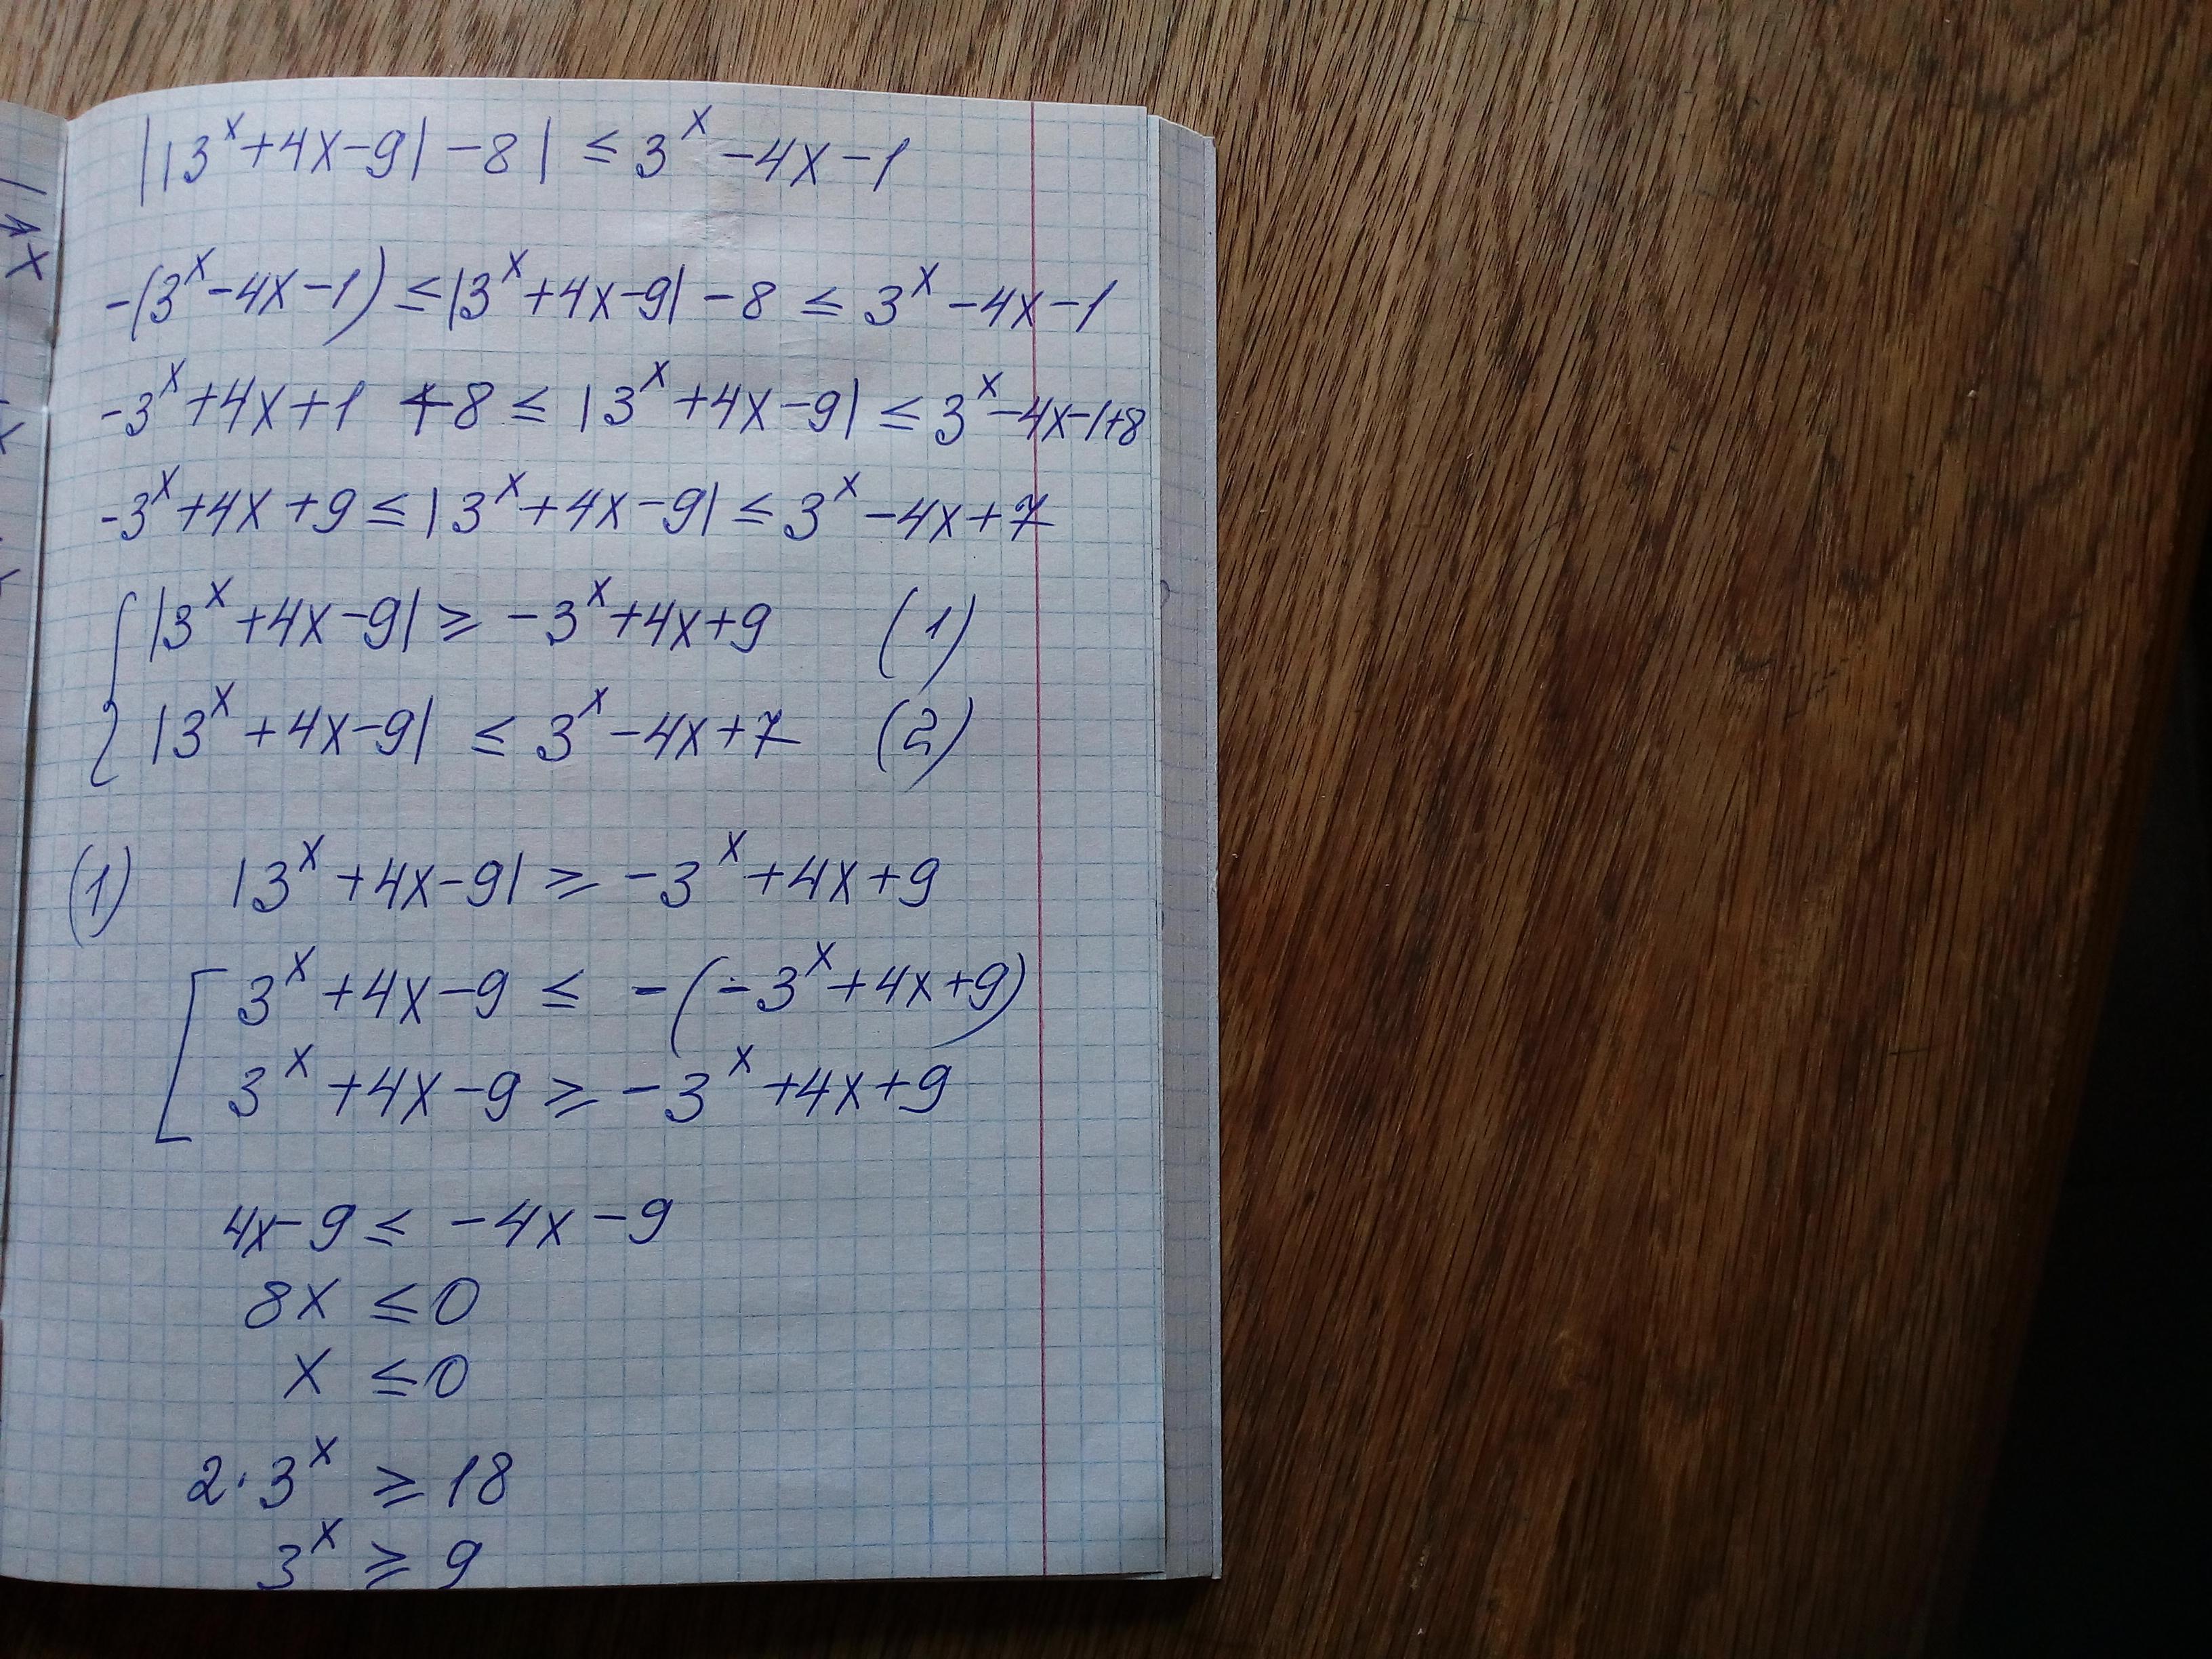 ||3^x+4x-9|-8| ≤ 3^x-4x-1
-(3^x-4x-1) ≤ |3^x+4x-9|-8 ≤ 3^x-4x-1
-3^x+4x+1 +8 ≤ |3^x+4x-9| ≤ 3^x-4x-1+8
-3^x+4x+9 ≤ |3^x+4x-9| ≤ 3^x-4x+7
{ |3^x+4x-9| ≥ -3^x+4x+9 (1)
|3^x+4x-9| ≤ 3^x-4x+7 (2)
(1) |3^x+4x-9| ≥ -3^x+4x+9
[ 3^x+4x-9 ≤ -(-3^x+4x+9)
3^x+4x-9 ≥ -3^x+4x+9
4x-9 ≤ -4x-9
8x ≤ 0
x ≤ 0
2·3^x ≥ 18
3^x ≥ 9